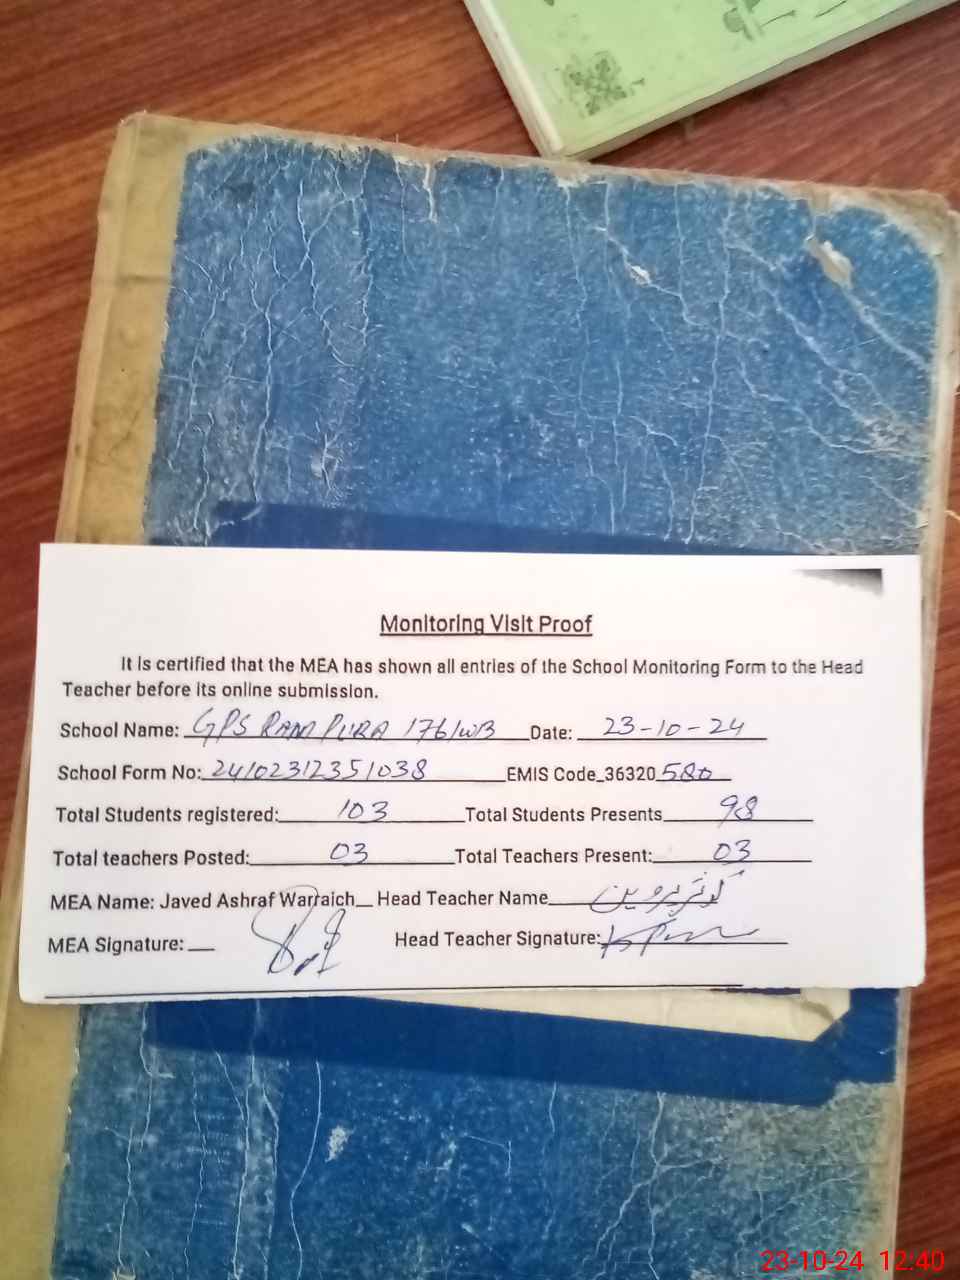 Monitoring Visit Proof
It is certified that the MEA has shown all entries of the School Monitoring Form to the Head
Teacher before its online submission.
School Name: GPS RAMPURA 176/WB Date: 23-10-24
School Form No: 24102312351038 EMIS Code_36320580
Total Students registered: 103 Total Students Presents 98
Total teachers Posted: 03 Total Teachers Present: 03
MEA Name: Javed Ashraf Warraich Head Teacher Name کوثر پروین
MEA Signature: Head Teacher Signature:
23-10-24 12:40